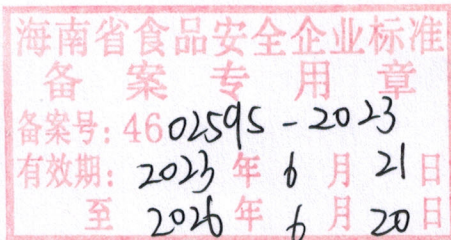 海南省食品安全企业标准
备案专用章
备案号:4602595-2023
有效期:2023年6月21日
至2026年6月20日